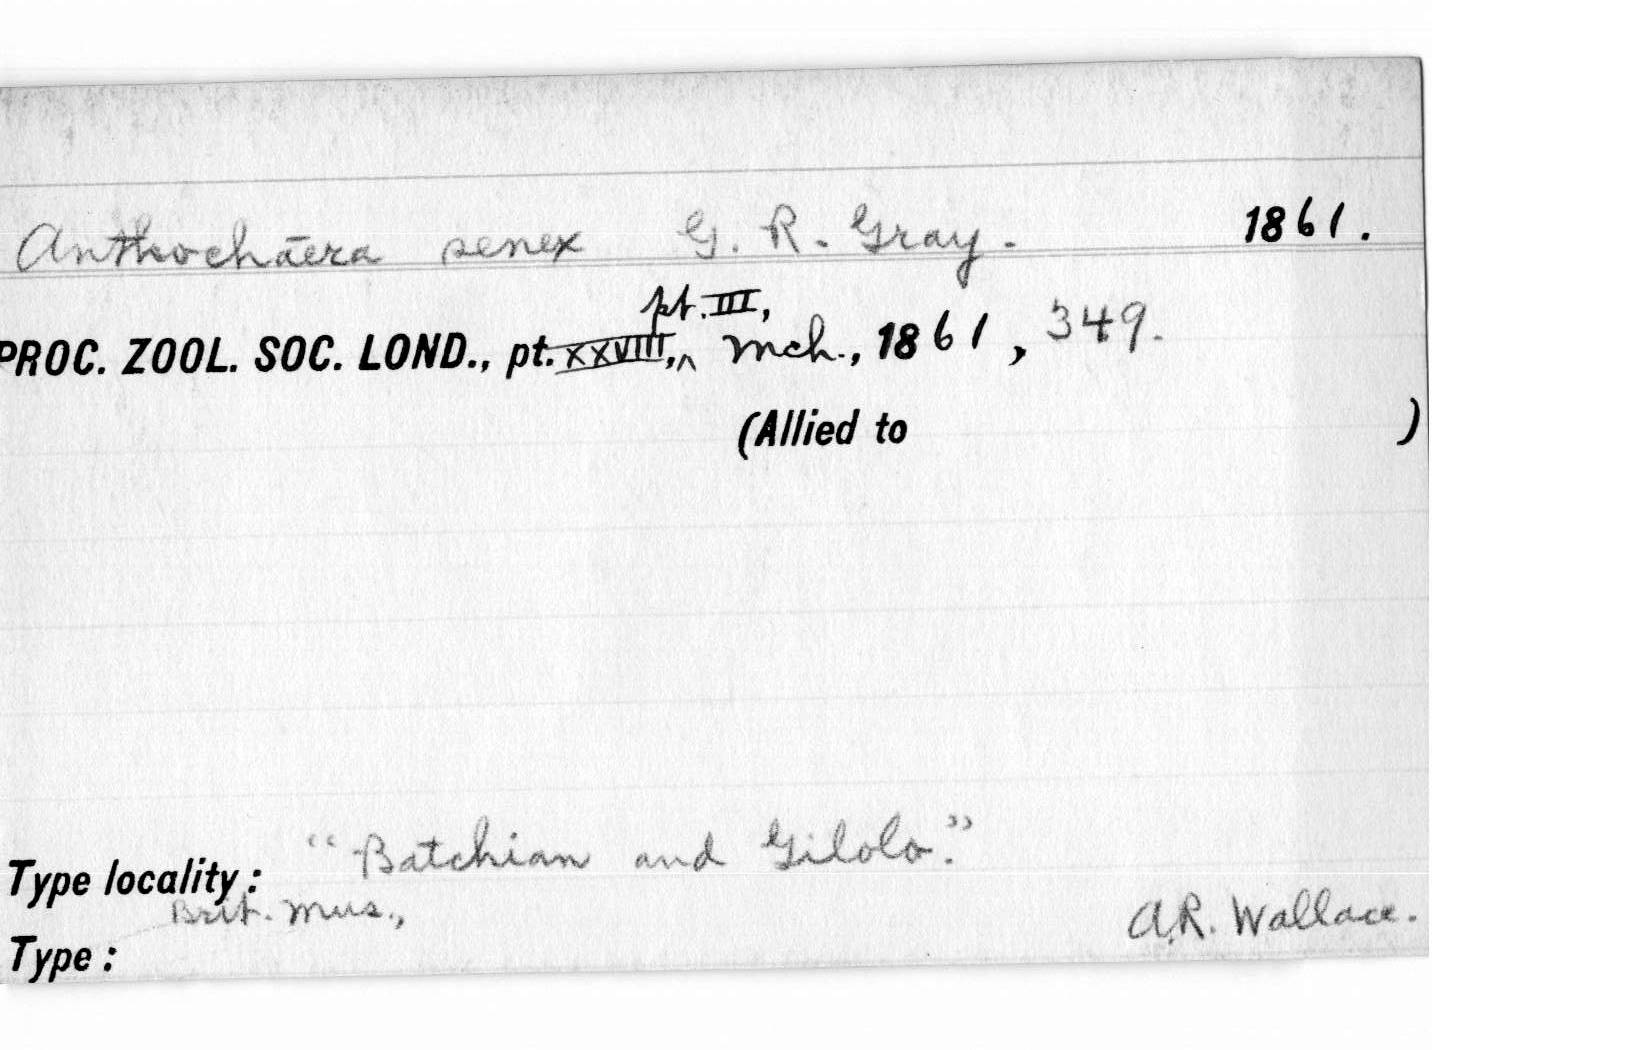 Anthochāera senex G. R. Gray. 1861.
pt. III,
PROC. ZOOL. SOC. LOND., pt. XXVIII,^ Mch., 1861, 349.
(Allied to )
Type locality: "Batchian and Gilolo."
Brit. Mus., A.R. Wallace.
Type: